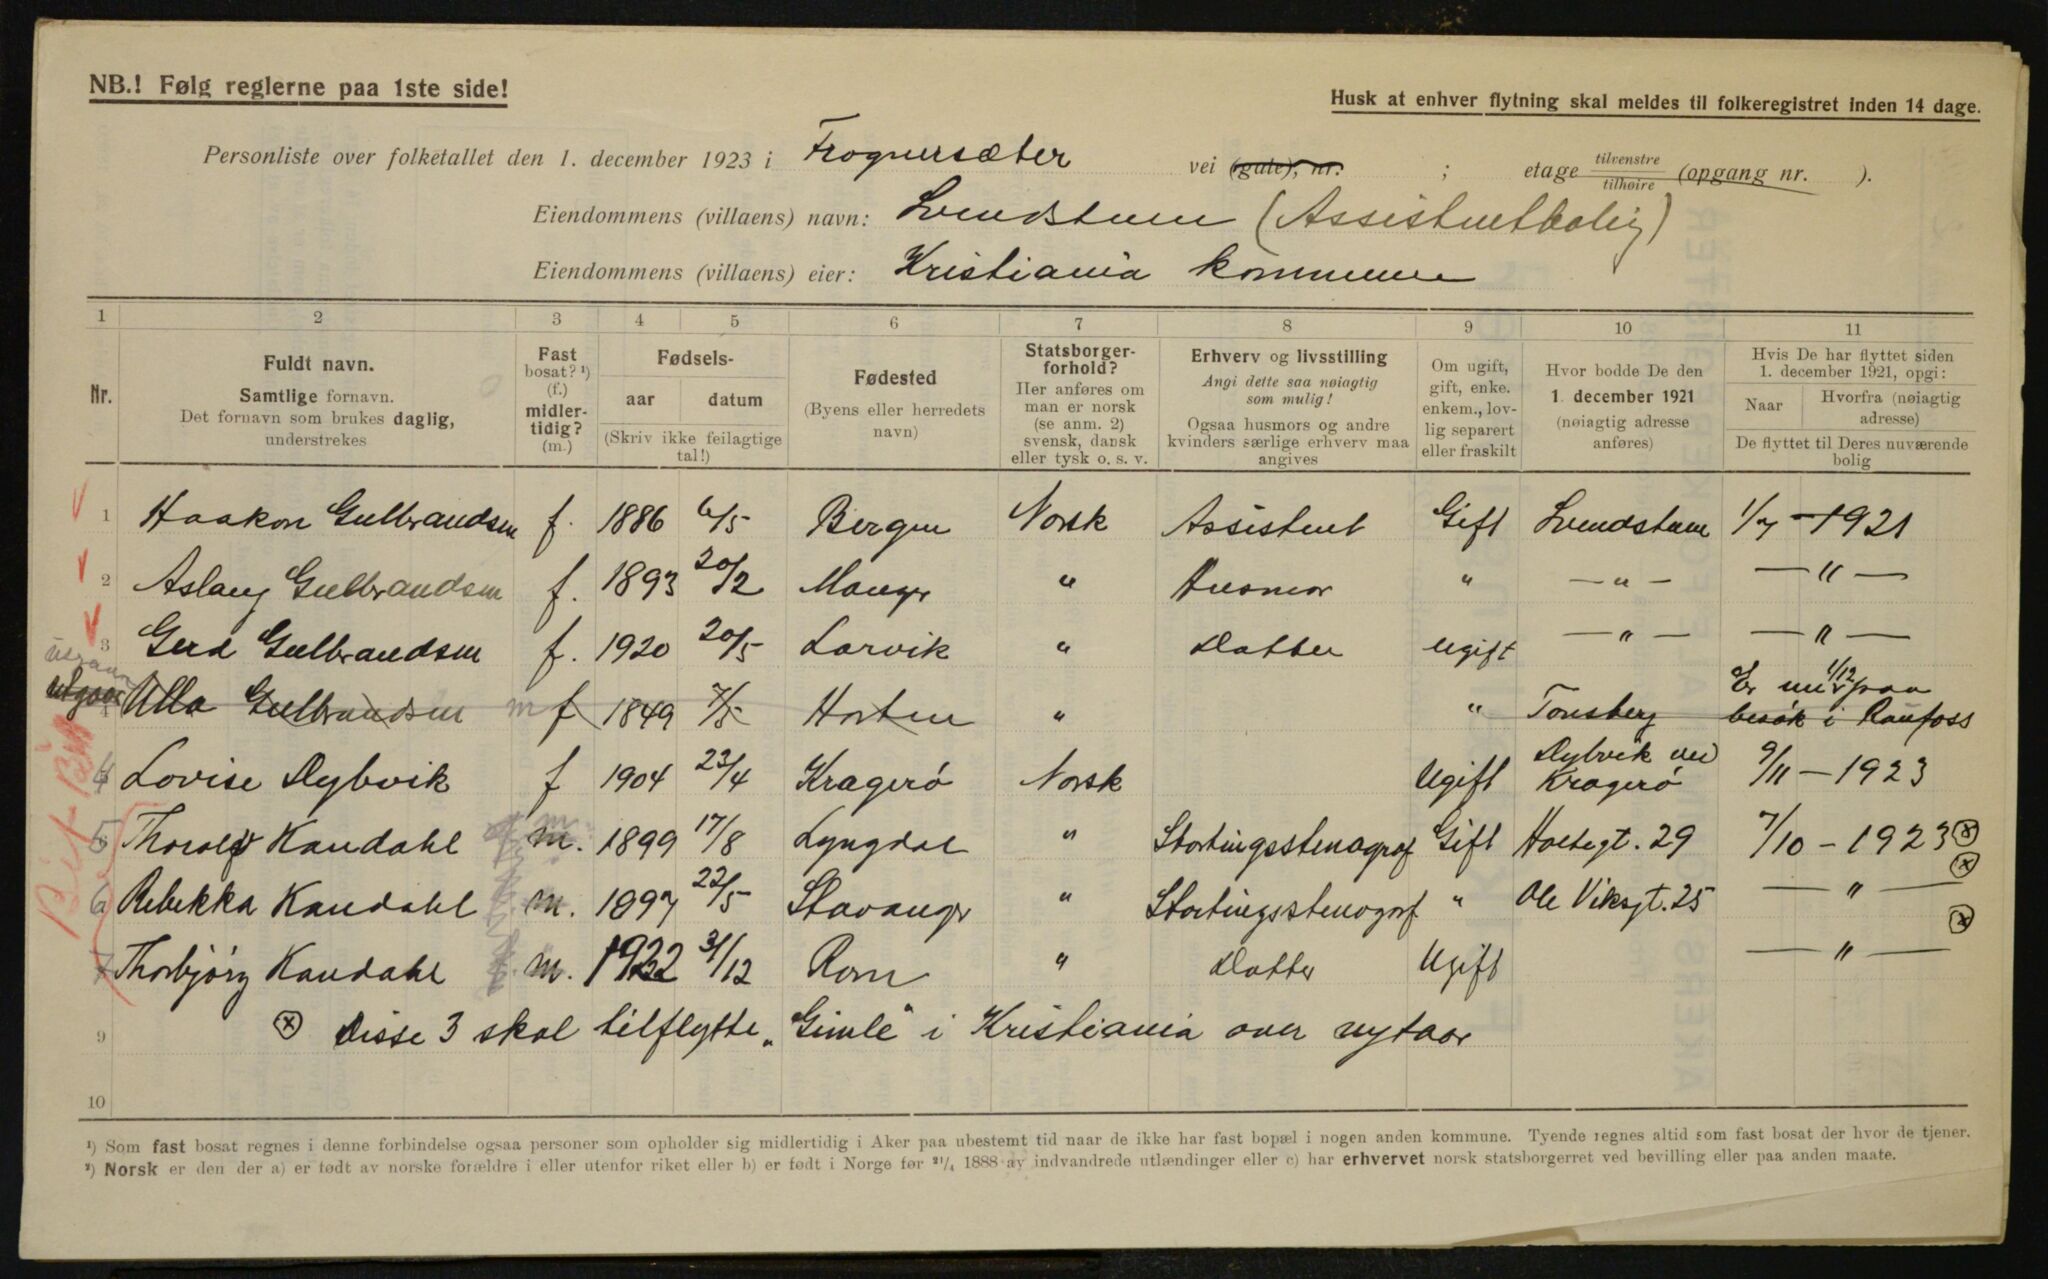 NB.! Følg reglerne paa 1ste side!
Husk at enhver flytning skal meldes til folkeregistret inden 14 dage.
Personliste over folketallet den 1. december 1923 i Frognersæter vei (gate), nr. ; etage tilvenstre tilhøire (opgang nr. ).
Eiendommens (villaens) navn: Svendstuen (Assistentbolig)
Eiendommens (villaens) eier: Kristiania kommune
1 2 3 4 5 6 7 8 9 10 11
Nr.
Fuldt navn.
Samtlige fornavn.
Det fornavn som brukes daglig,
understrekes
Fast
bosat? ¹)
(f.)
midler-
tidig?
(m.)
Fødsels-
aar datum
(Skriv ikke feilagtige
tal!)
Fødested
(Byens eller herredets
navn)
Statsborger-
forhold?
Her anføres om
man er norsk
(se anm. 2)
svensk, dansk
eller tysk o. s. v.
Erhverv og livsstilling
Angi dette saa nøiagtig
som mulig!
Ogsaa husmors og andre
kvinders særlige erhverv maa
angives
Om ugift,
gift, enke.
enkem., lov-
lig separert
eller fraskilt
Hvor bodde De den
1. december 1921
(nøiagtig adresse
anføres)
Hvis De har flyttet siden
1. december 1921, opgi:
Naar Hvorfra (nøiagtig
adresse)
De flyttet til Deres nuværende
bolig
1 Haakon Gulbrandsen f. 1886 6/5 Bergen Norsk Assistent Gift Svendstuen 1/7 - 1921
2 Aslaug Gulbrandsen f. 1893 20/2 Manger " Husmor " — " — — " —
3 Gerd Gulbrandsen f. 1920 20/5 Larvik " Datter ugift — " — — " —
utgaar Ulla Gulbrandsen m f 1849 7/5 Horten " " Tonsberg Er 1/12 paa
besøk i Raufoss
4 Lovise Dybvik f 1904 23/4 Kragerø Norsk Ugift Dybvik ved
Kragerø 9/11 - 1923
5 Thorolf Kandahl m. 1899 17/8 Lyngdal " Stortingsstenograf Gift Holtegt. 29 7/10 - 1923 ⓧ
6 Rebekka Kandahl m. 1897 22/5 Stavanger " Stortingsstenograf " Ole Viksgt. 25 — " — ⓧ
7 Thorbjørg Kandahl m. 1922 31/12 Rom " Datter Ugift — " — ⓧ
9 ⓧ Disse 3 skal tilflytte „Gimle" i Kristiania over nytaar
10
¹) Som fast bosat regnes i denne forbindelse ogsaa personer som opholder sig midlertidig i Aker paa ubestemt tid naar de ikke har fast bopæl i nogen anden kommune. Tyende regnes altid som fast bosat der hvor de tjener.
²) Norsk er den der a) er født av norske forældre i eller utenfor riket eller b) er født i Norge før ²¹/₄ 1888 av indvandrede utlændinger eller c) har erhvervet norsk statsborgerret ved bevilling eller paa anden maate.